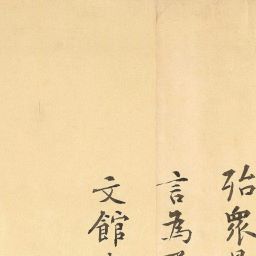 殆眾
言為
文館